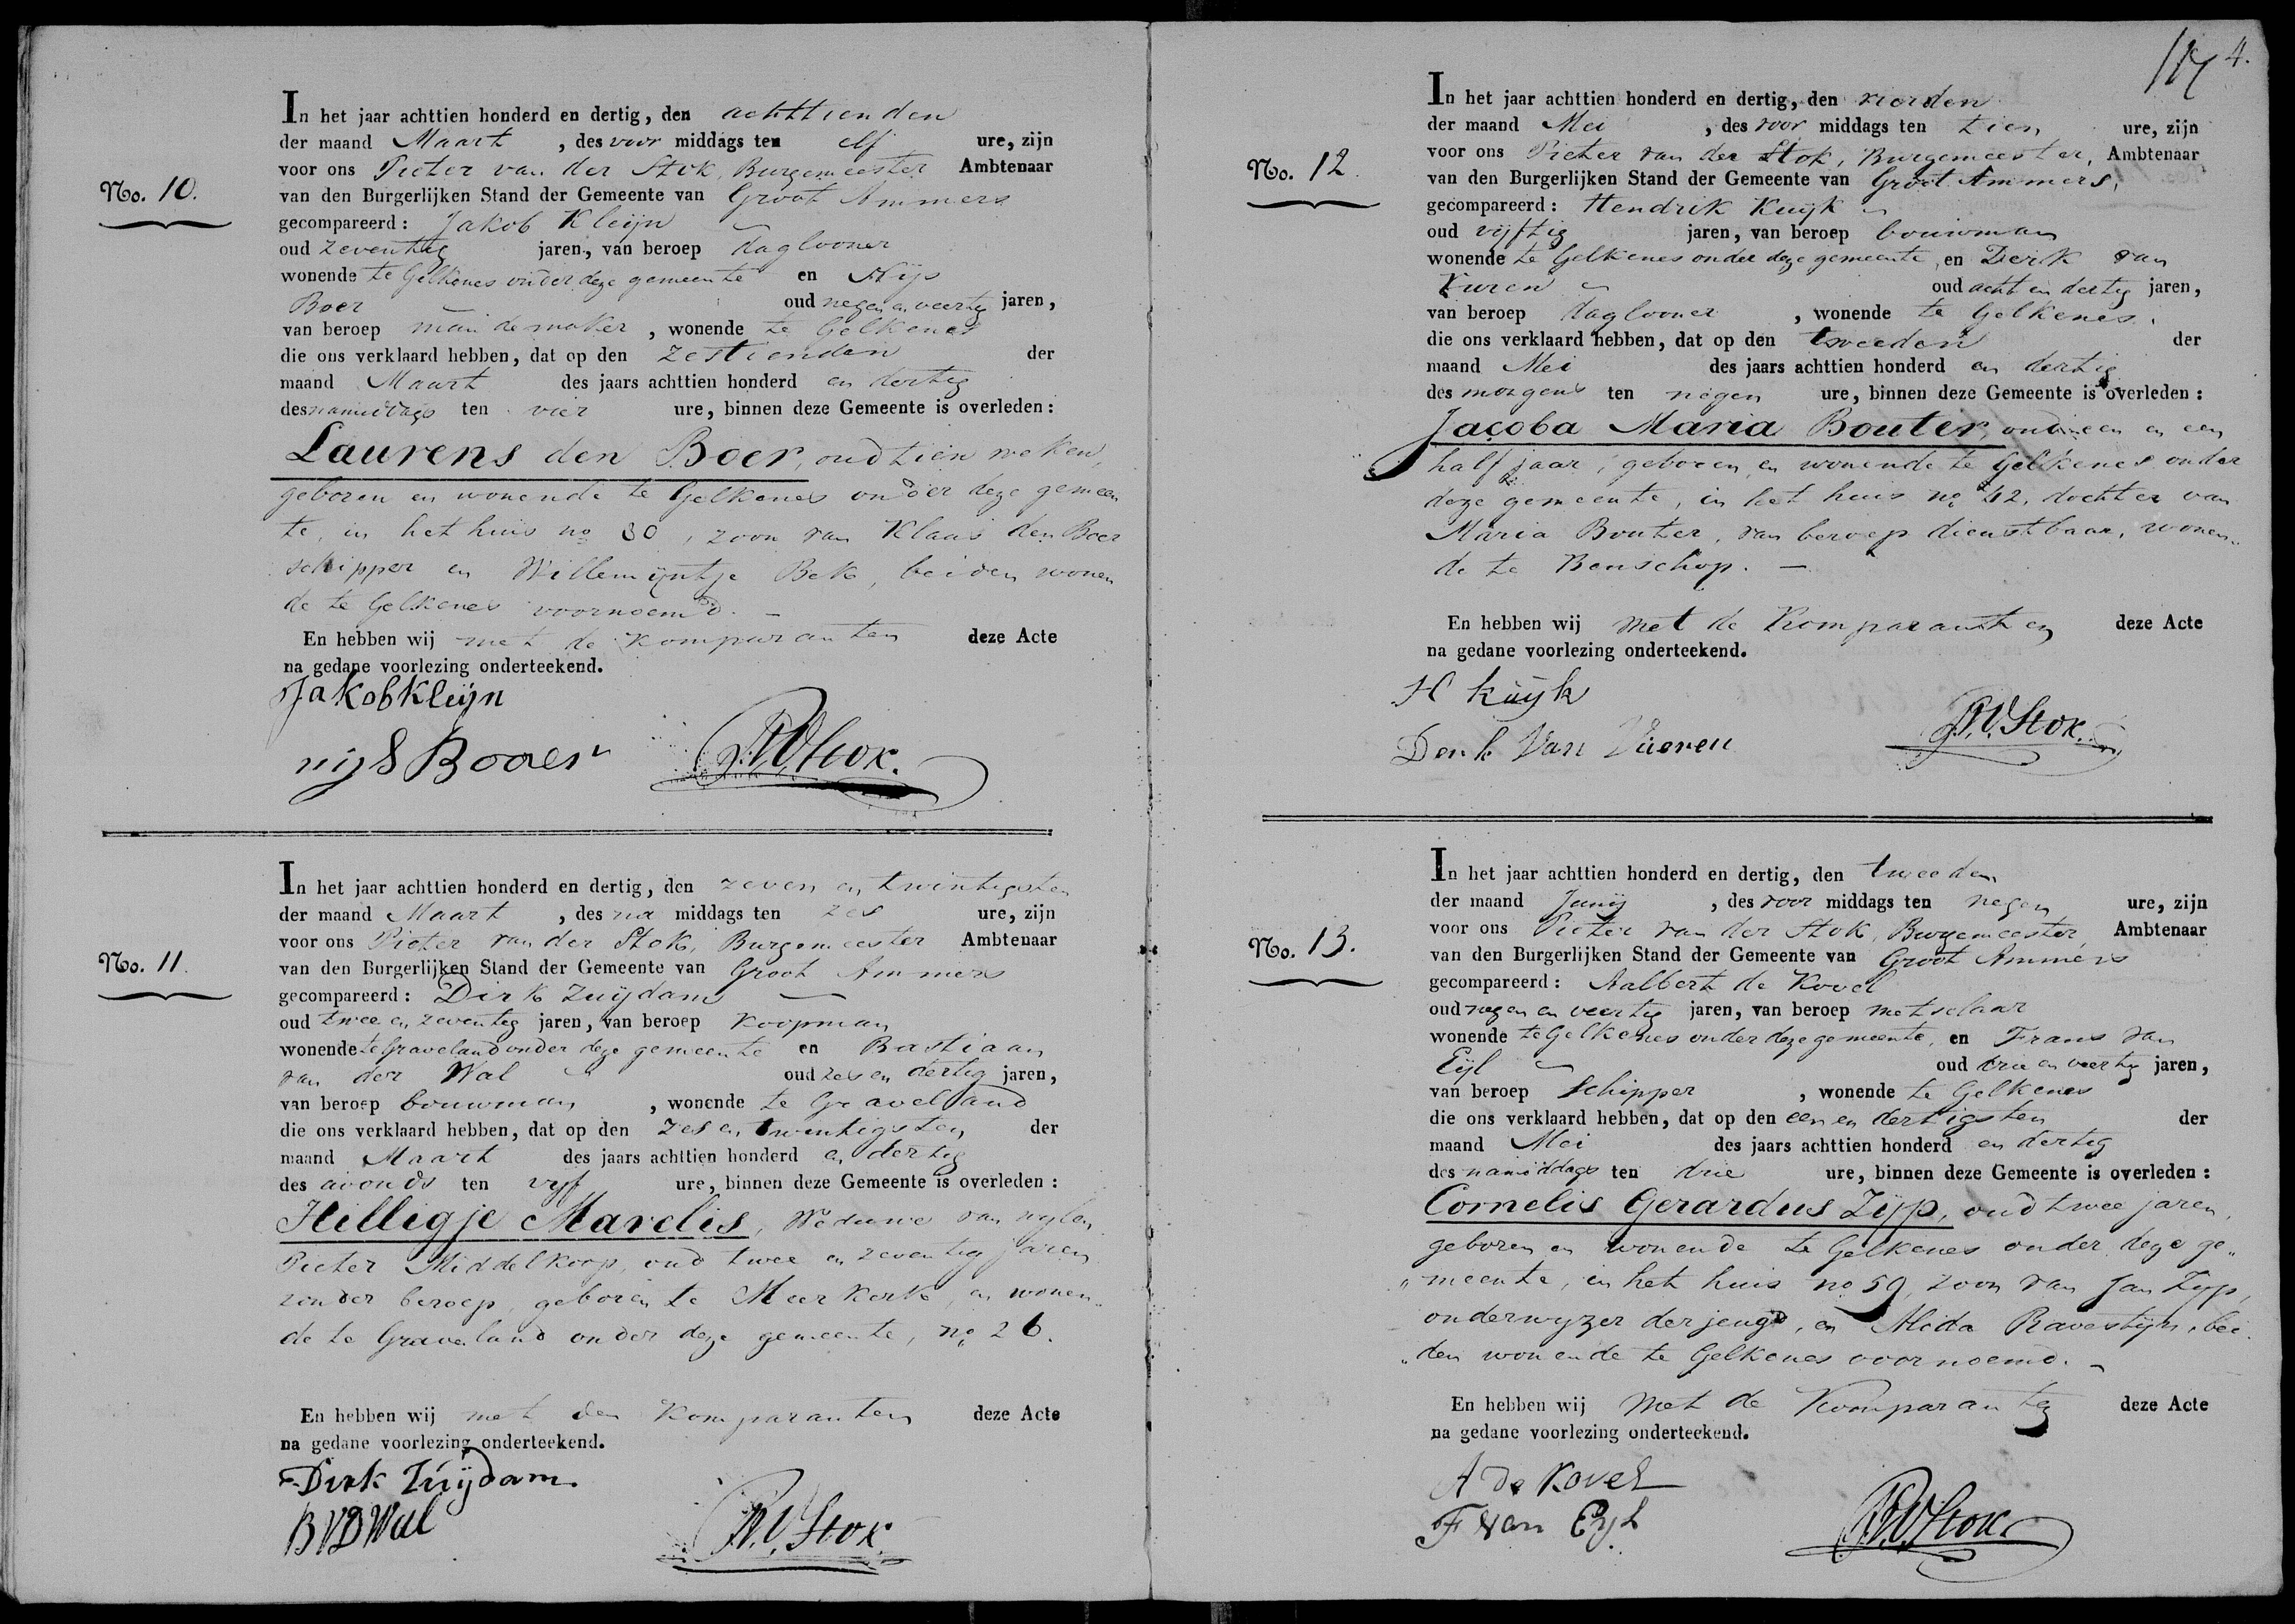 In het jaar achttien honderd en dertig, den achttienden
der maand Maart , des voor middags ten elf ure, zijn
voor ons Pieter van der Stok, Burgemeester Ambtenaar
No. 10.
van den Burgerlijken Stand der Gemeente van Groot Ammers
gecompareerd: Jakob Kleijn
oud zeventig jaren, van beroep daglooner
wonende te Gelkenes onder deze gemeente en Nijs
Boer oud negen en veertig jaren,
van beroep mandemaker , wonende te Gelkenes
die ons verklaard hebben, dat op den zestienden der
maand Maart des jaars achttien honderd en dertig
des namiddags ten vier ure, binnen deze Gemeente is overleden:
Laurens den Boer, oud tien weken,
geboren en wonende te Gelkenes onder deze gemeen
te, in het huis no 30, zoon van Klaas den Boer
schipper en Willemijntje Bek, beiden wonen
de te Gelkenes voornoemd. –
En hebben wij met de komparanten deze Acte
na gedane voorlezing onderteekend.
Jakob Kleijn
nijs Booer P.V.Stok.
In het jaar achttien honderd en dertig, den zeven en twintigsten
der maand Maart , des na middags ten zes ure, zijn
voor ons Pieter van der Stok, Burgemeester Ambtenaar
No. 11.
van den Burgerlijken Stand der Gemeente van Groot Ammers
gecompareerd: Dirk Zuijdam
oud twee en zeventig jaren, van beroep Koopman
wonende te Graveland onder deze gemeente en Bastiaan
van der Wal oud zes en dertig jaren,
van beroep bouwman , wonende te Graveland
die ons verklaard hebben, dat op den zes en twintigsten der
maand Maart des jaars achttien honderd en dertig
des avonds ten vijf ure, binnen deze Gemeente is overleden:
Hilligje Marelis, Weduwe van wylen
Pieter Middelkoop, oud twee en zeventig jaren
zonder beroep, geboren te Meerkerk, en wonen„
de te Graveland onder deze gemeente, no 26.
En hebben wij met den komparanten deze Acte
na gedane voorlezing onderteekend.
Dirk Zuijdam.
B V D Wal P.V.Stok
4.
In het jaar achttien honderd en dertig, den vierden
der maand Mei , des voor middags ten tien ure, zijn
voor ons Pieter van der Stok, Burgemeester, Ambtenaar
No. 12.
van den Burgerlijken Stand der Gemeente van Groot Ammers,
gecompareerd: Hendrik Kuijk
oud vijftig jaren, van beroep bouwman
wonende te Gelkenes onder deze gemeente, en Derk van
Vuren oud acht en dertig jaren,
van beroep daglooner , wonende te Gelkenes.
die ons verklaard hebben, dat op den tweeden der
maand Mei des jaars achttien honderd en dertig
des morgens ten negen ure, binnen deze Gemeente is overleden:
Jacoba Maria Bouter, oud een en een
half jaar, geboren en wonende te Gelkenes onder
deze gemeente, in het huis no 42, dochter van
Maria Bouter, van beroep dienstbaar, wonen„
de te Benschop. –
En hebben wij met de Komparanten deze Acte
na gedane voorlezing onderteekend.
H kuyk
Derk Van Vueren P.V.Stok.
In het jaar achttien honderd en dertig, den tweeden
der maand Junij , des voor middags ten negen ure, zijn
voor ons Pieter van der Stok, Burgemeester, Ambtenaar
No. 13.
van den Burgerlijken Stand der Gemeente van Groot Ammers
gecompareerd: Aalbert de Kovel
oud negen en veertig jaren, van beroep metselaar
wonende te Gelkenes onder deze gemeente, en Frans van
Eijl oud drie en veertig jaren,
van beroep Schipper , wonende te Gelkenes
die ons verklaard hebben, dat op den een en dertigsten der
maand Mei des jaars achttien honderd en dertig
des namiddags ten drie ure, binnen deze Gemeente is overleden:
Cornelis Gerardus Zijp, oud twee jaren,
geboren en wonende te Gelkenes onder deze ge„
„meente, in het huis no 59, zoon van Jan Zyp,
onderwyzer der jeugd, en Alida Ravestijn, bei
„den wonende te Gelkenes voornoemd. –
En hebben wij met de Komparanten deze Acte
na gedane voorlezing onderteekend.
A de Kovel
F van Eyl P.V.Stok